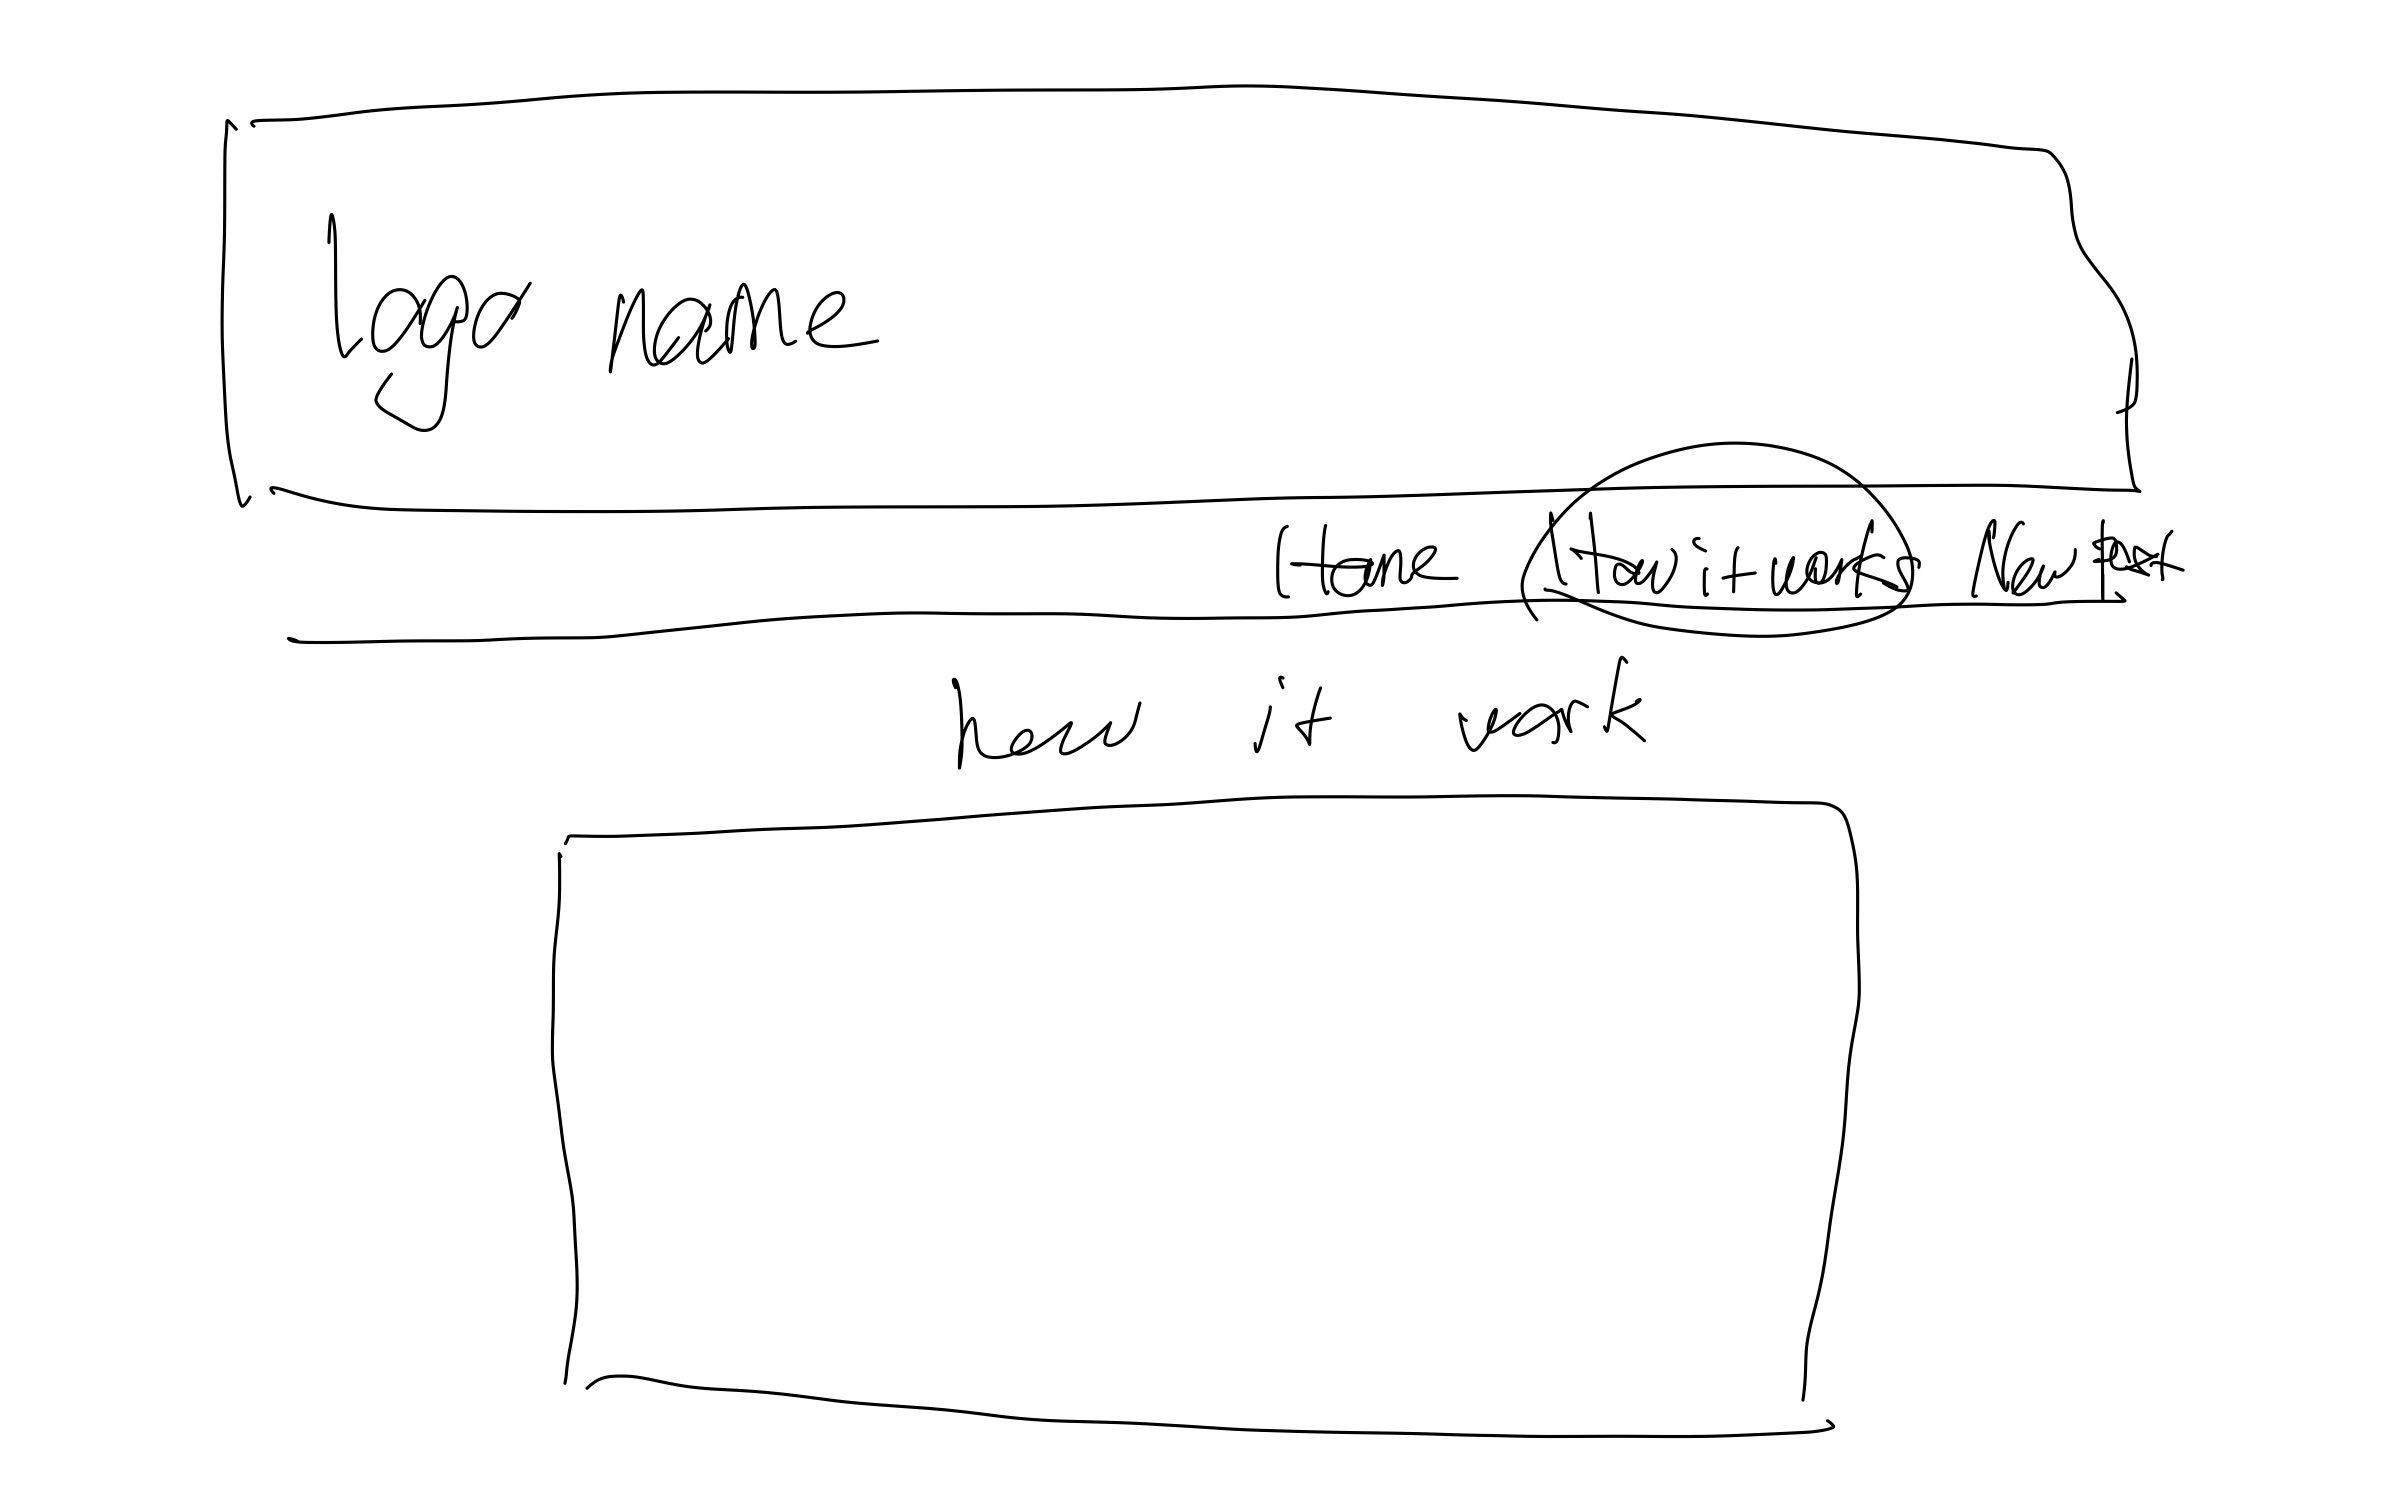 logo name
Home How it works
how it work